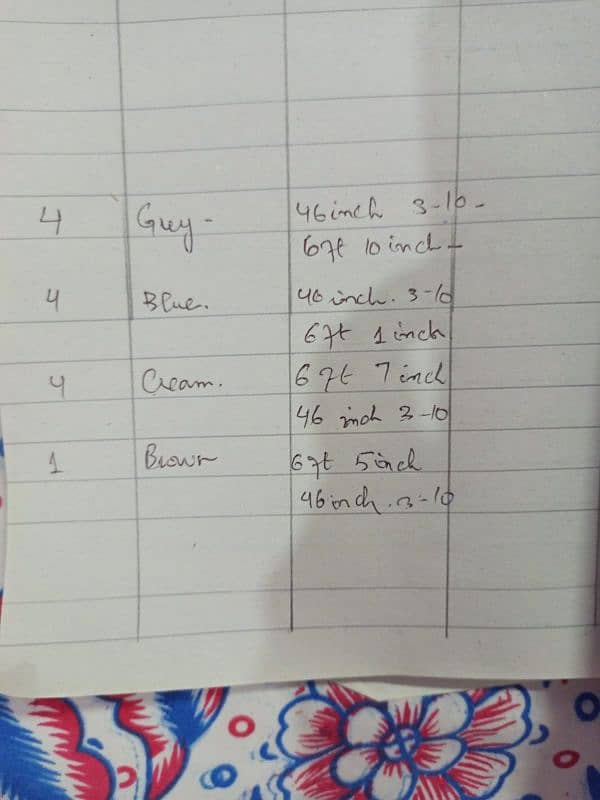 4 Grey - 46 inch 3-10 -
6 ft 10 inch -
4 Blue. 46 inch. 3-10
6 ft 1 inch
4 Cream. 6 ft 7 inch
46 inch 3-10
1 Brown 6 ft 5 inch
46 inch. 3-10